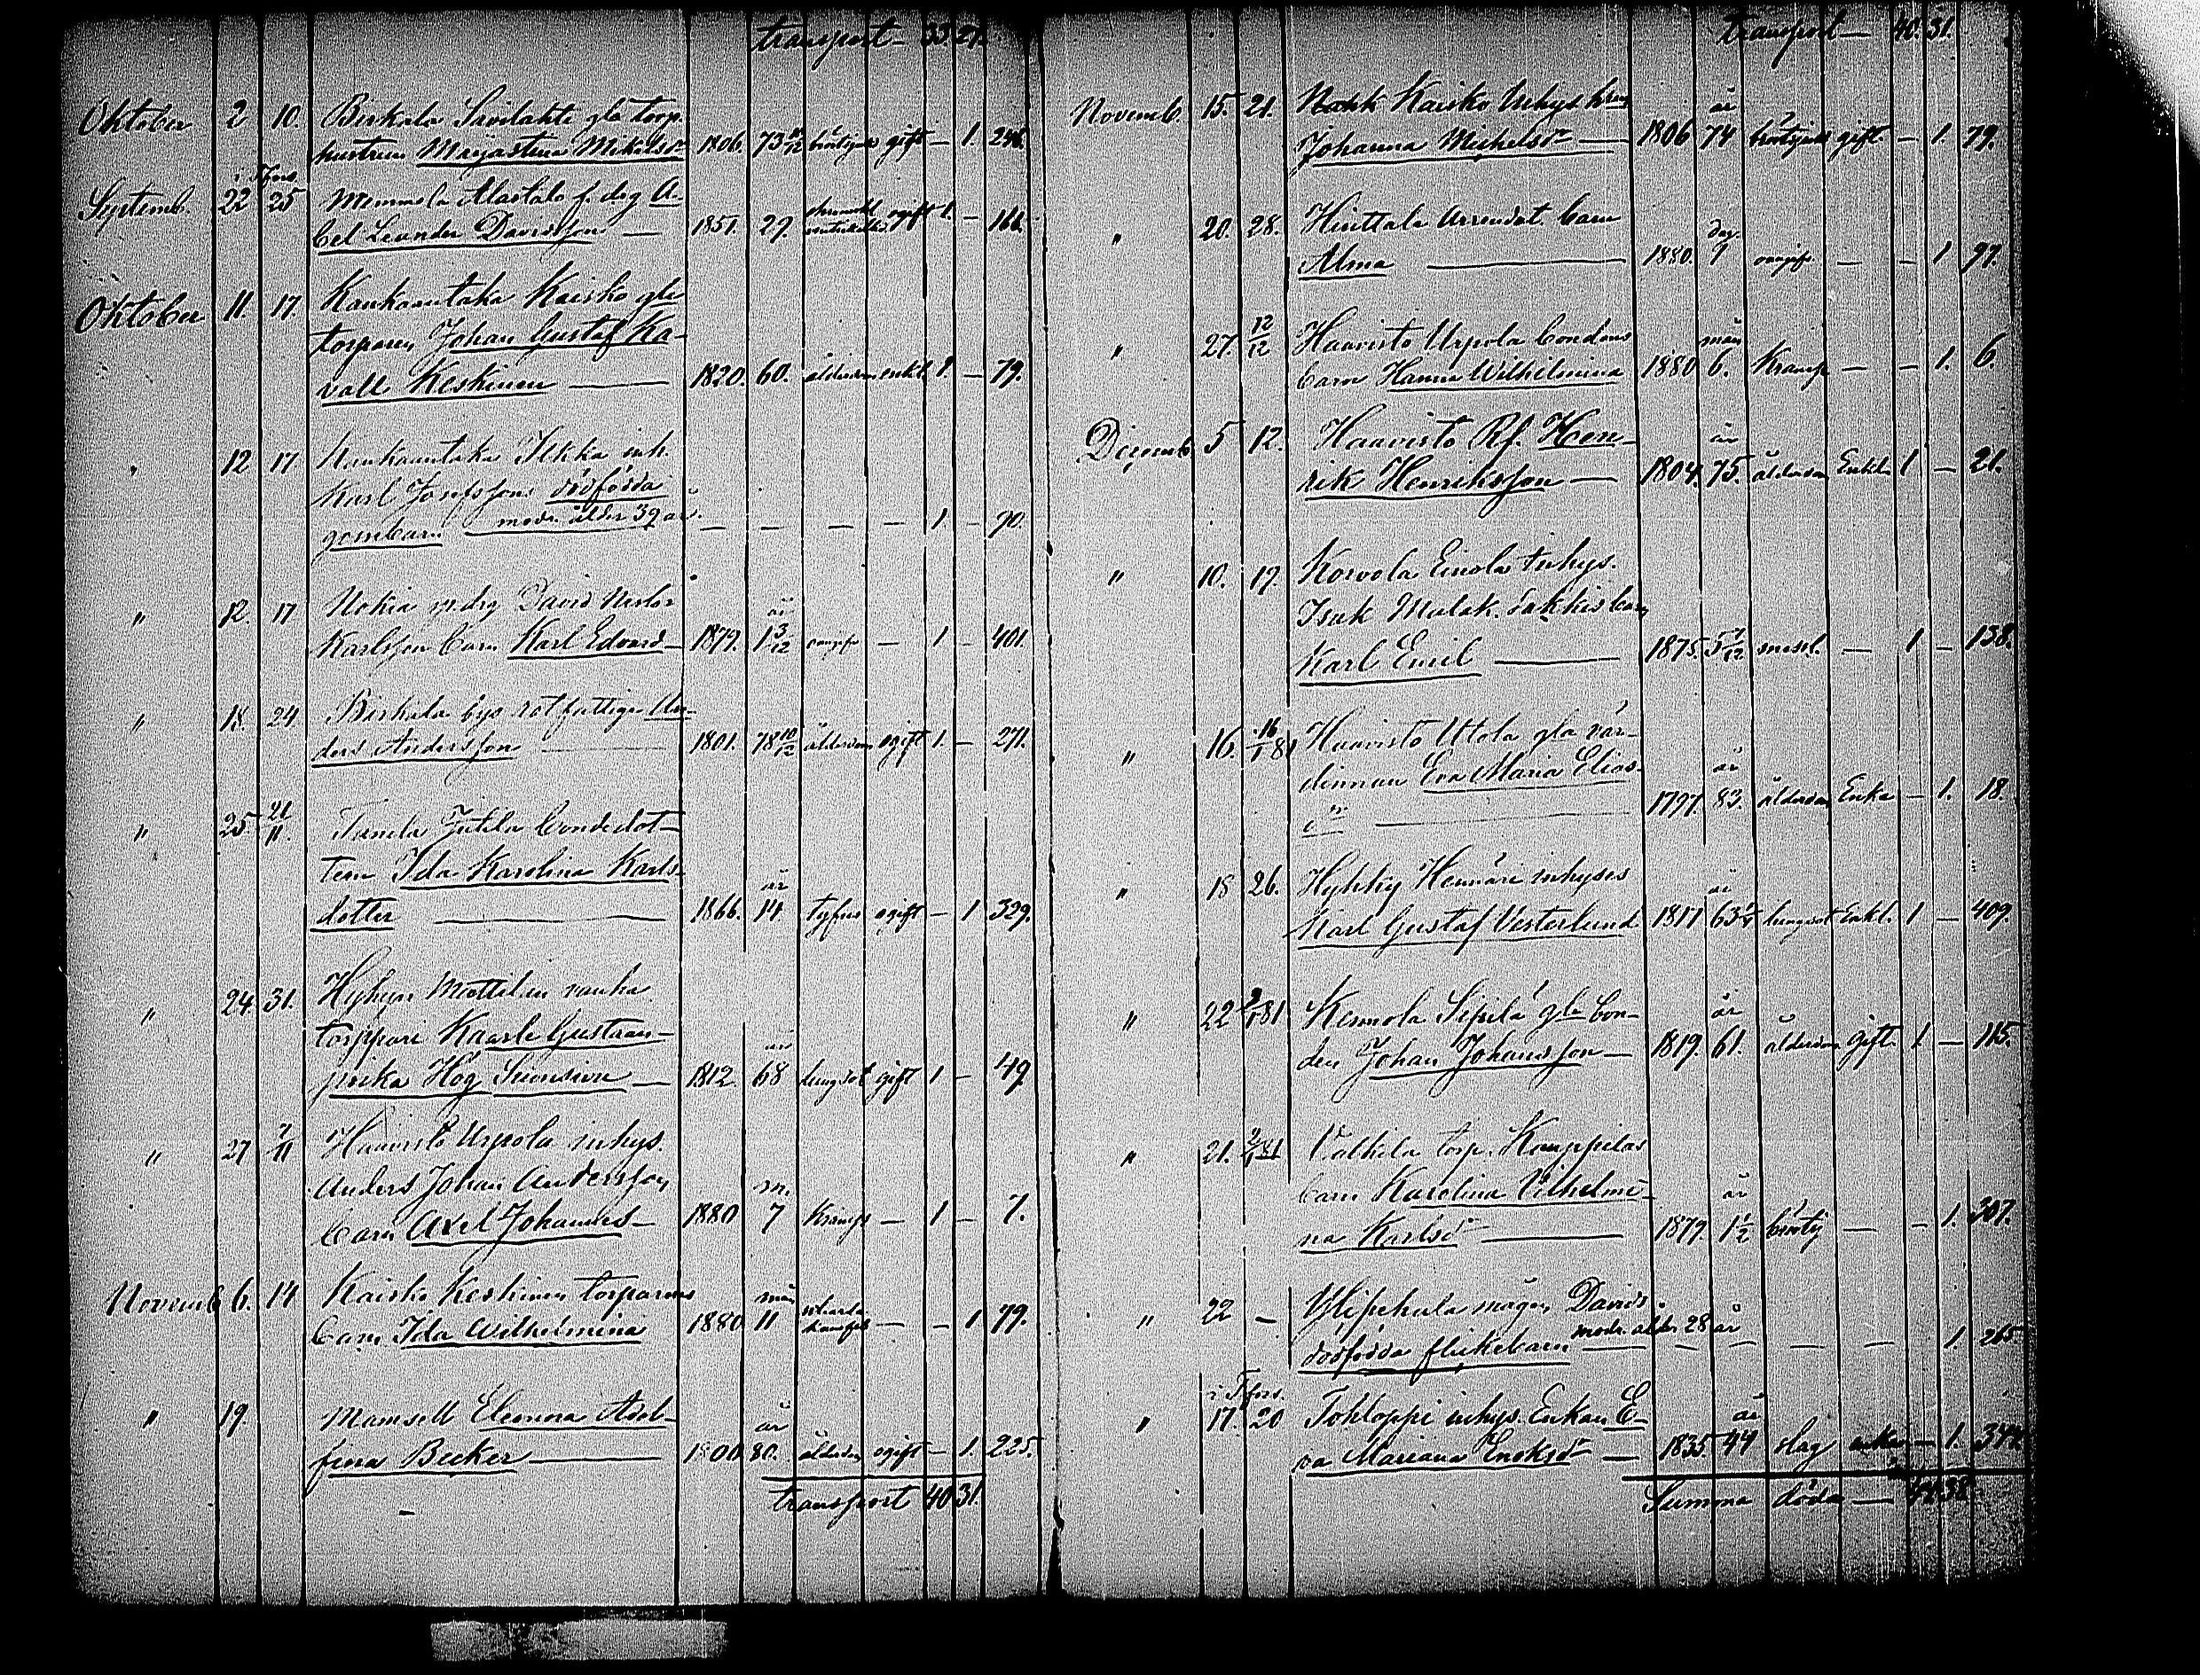 transport — 33. 27.
Oktober 2 10. Birkala Savilahti gla torp.
hustrun Majastina Mikelsdr 1806. 73 10/12 bröstsjuk gift — 1. 246.
i Tfors
Septemb. 22 25 Memmola Alastalo f. drg A-
bel Leander Davidsson — 1851. 29. ogift 1. — 166.
Oktober 11 17. Kankaantaka Kaisko gle
torparen Johan Gustaf Ka-
vall Keskinen — 1820. 60. ålderdom enkl. 1. — 79.
" 12 17 Kankaantaka Ilkka inh.
Karl Josefssons dödfödda
gossebarn modr. ålder 39 år. — — — — 1 — 70.
" 12. 17 Nokia gr. drg David Nestor
år
Karlsson barn Karl Edvard — 1879. 1 3/12 — 1 — 401.
" 18. 24 Birkala bys rotfattige An-
ders Andersson — 1801. 78 10/12 ålderdom ogift 1. — 271.
" 25 21/11. Tanila Jutila bondedot-
tern Ida Karolina Karls-
år
dotter — 1866. 14 tyfus ogift — 1 329.
" 24. 31. Hyhyn Mattilan vanha
torppari Kaarle Gustaan-
år
poika Hog — 1812. 68 lungsot gift 1 — 49
" 27 7/11 Haavisto Urpola inhys.
Anders Johan Andersson
m.
barn Axel Johannes — 1880 7 Kramp — 1 — 7.
Novemb. 6. 14 Kaisko Keskinen torparens
mån
barn Ida Wilhelmina 1880 11 — — 1 79.
" 19. Mamsell Eleonora Adol-
år
fina Becker — 1800 80. ålderdom ogift — 1. 225.
transport 40 31.
transport — 40. 31.
Novemb. 15. 21. Kaisko Inhys hru
år
Johanna Michelsdr — 1806 74 bröstsjuk gift — 1. 79.
" 20. 28. Hinttala Arrendat. barn
dag.
Alma — 1880. 9 — — 1 97.
" 27. 12/12 Haavisto Urpola bondens
mån
barn Hanna Wilhelmina 1880 6. Kramp — — 1. 6.
Decemb. 5 12. Haavisto Rf. Hen-
år
rik Henriksson — 1804. 75. ålderdom Enkl. 1 — 21.
" 10. 19. Korvola Einola Inhys.
Isak Malak. barn
Karl Emil — 1875. 5 7/12 messl. — 1 — 138.
" 16. 16/1 81 Haavisto Utola gla vär-
år
dinnan Eva Maria Elias-
dr — 1797. 83. ålderdom Enka — 1. 18.
" 18 26. Hyhky Hennäri inhyses
år
Karl Gustaf Vesterlund 1817 63 lungsot Enkl. 1 — 409.
" 22 2/1 81 Kennola Sipilä gle bon-
år
den Johan Johansson — 1819. 61. ålderdom Gift. 1 — 115.
" 21. 2/1 81 Valkila torp. Kamppilas
barn Karolina Vilhelmi-
år
na Karlsdr — 1879. 1 1/2 — — 1. 307.
" 22 — Ylipekula mågen Davids
dödfödda flickebarn modr. ålder 28 år — — — — 1. 265
i Tfors.
" 17. 20 Tohloppi inhys. Enkan E-
år
va Mariana Enoksdr — 1835. 44 slag enka — 1. 344
Summa döda — 44 38